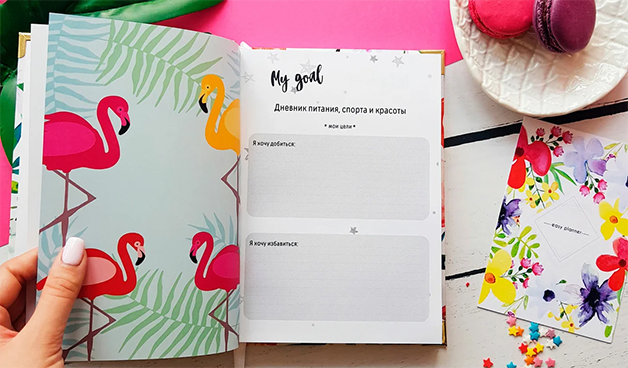 My goal
Дневник питания, спорта и красоты
* мои цели *
Я хочу добиться:
Я хочу избавиться:
easy planner